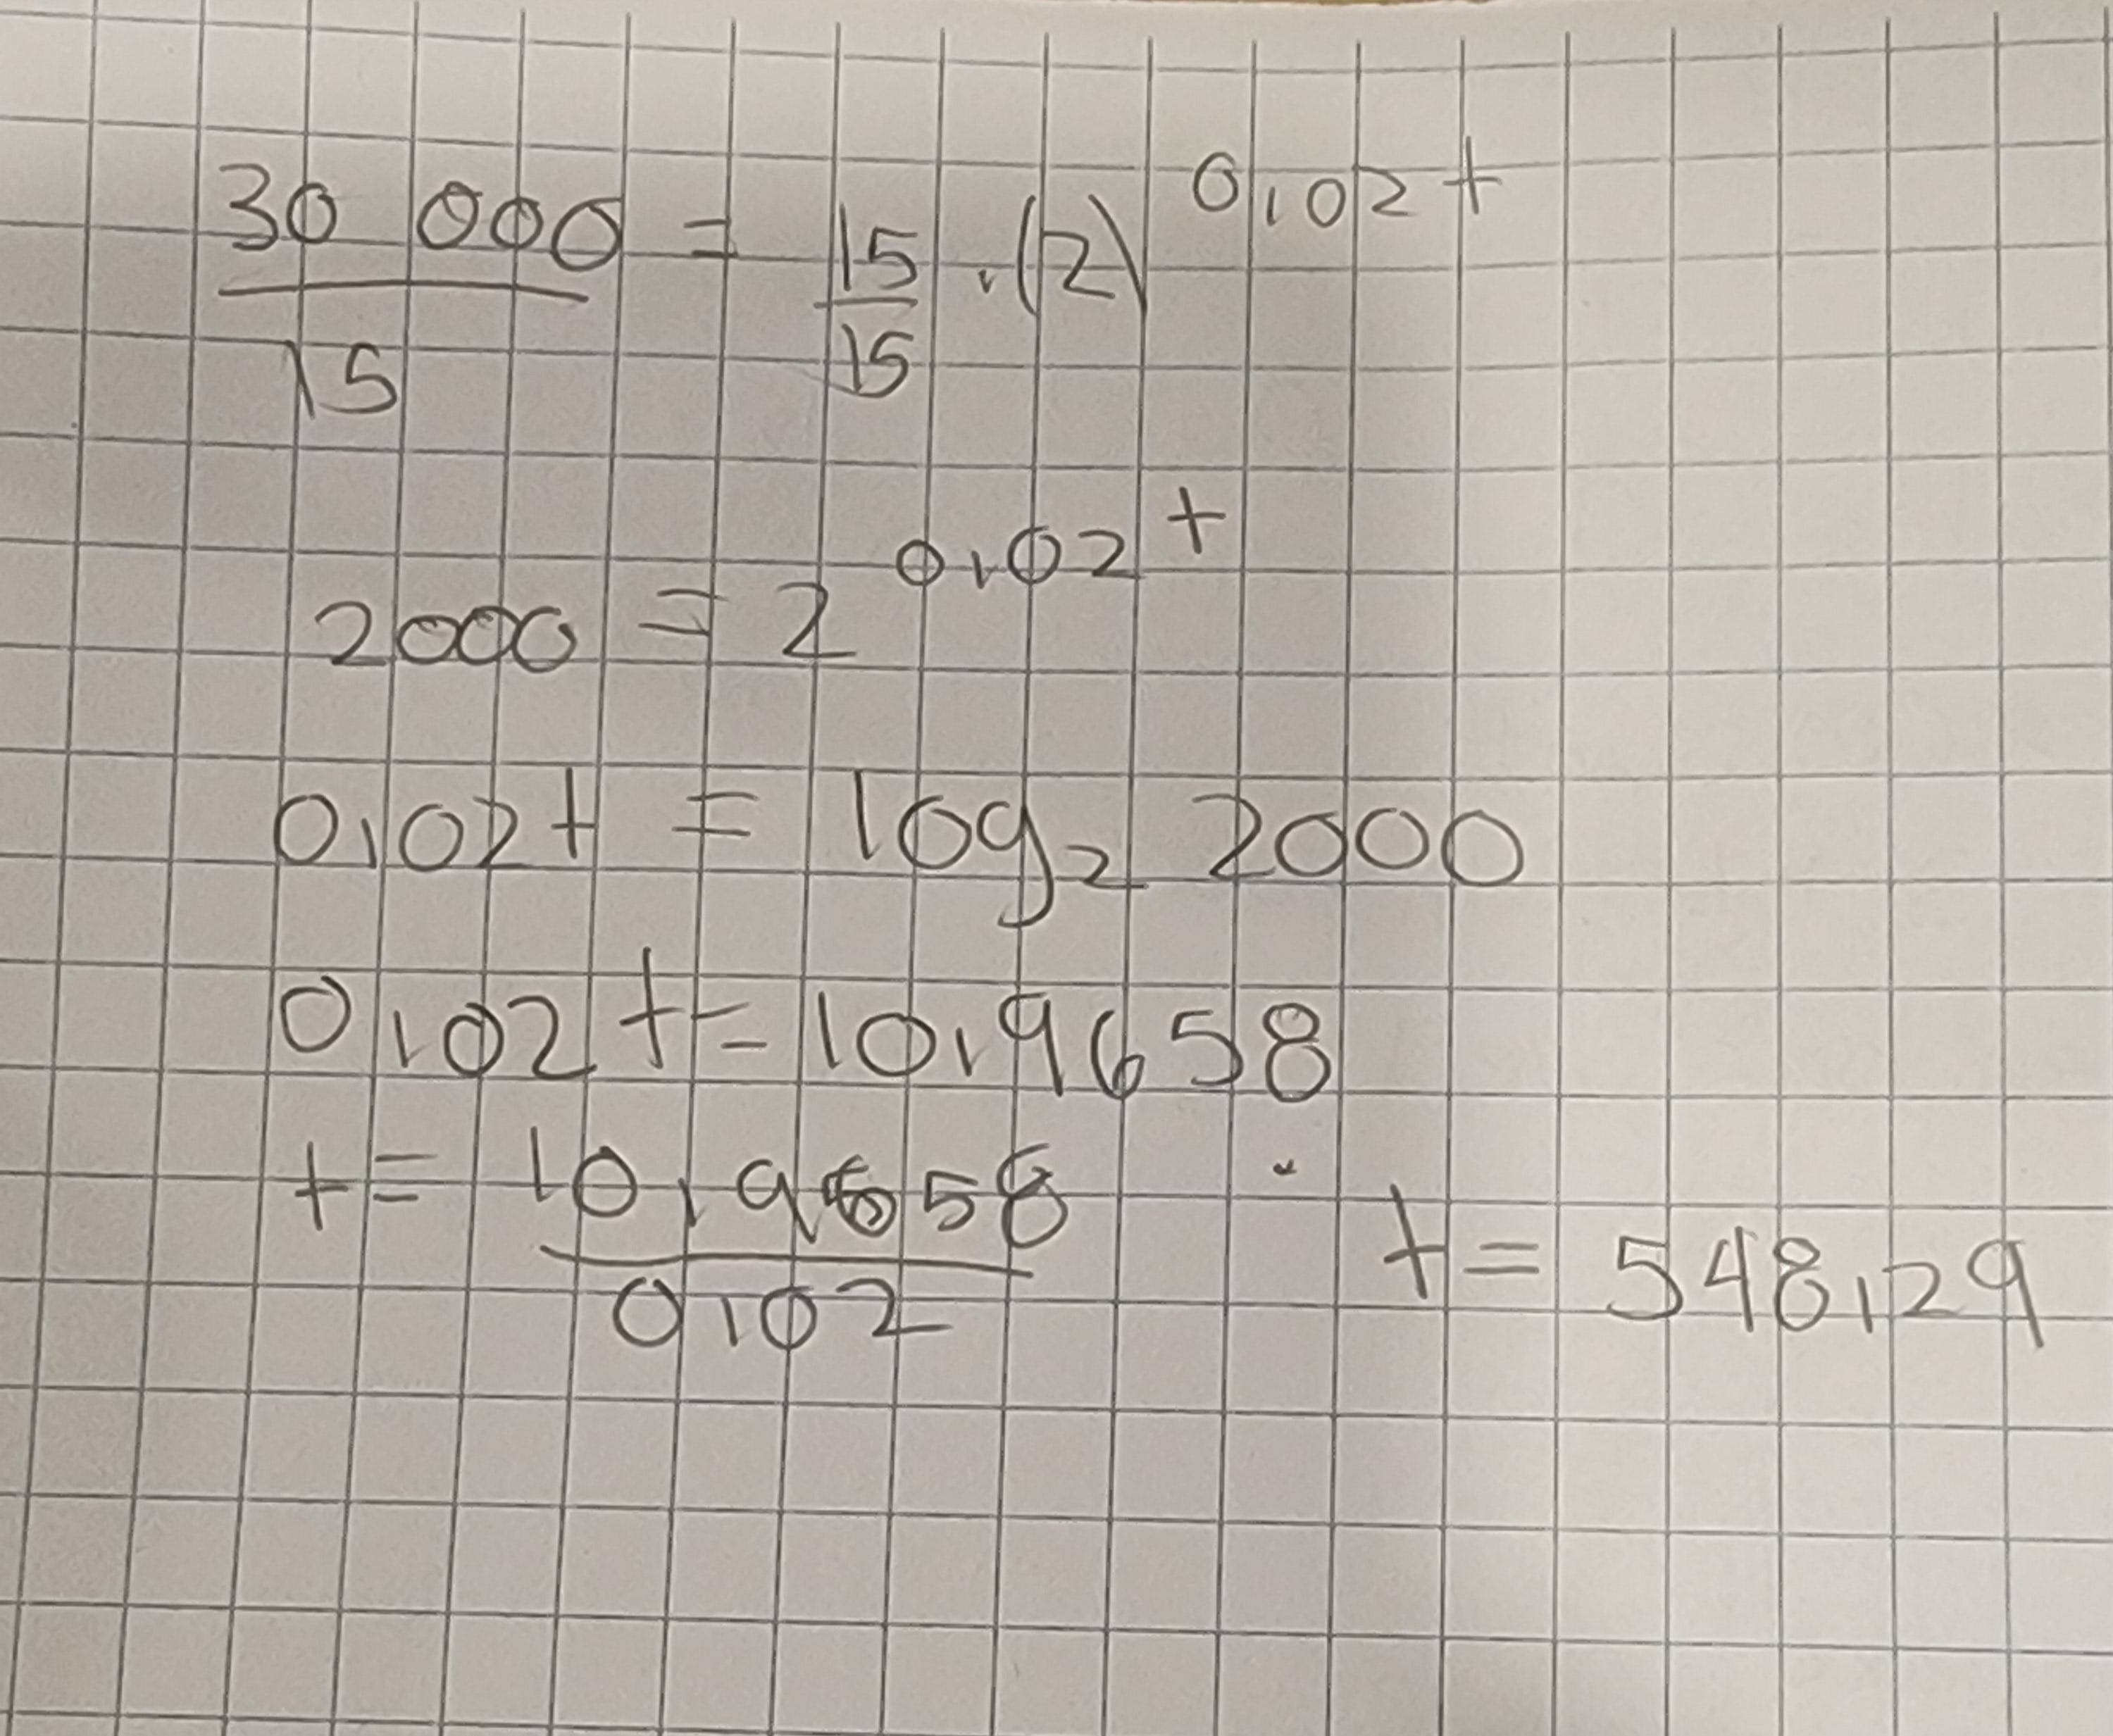 30 000 / 15 = 15/15 · (2)^0,02t
2000 = 2^0,02t
0,02t = log₂ 2000
0,02t = 10,9658
t = 10,9658 / 0,02
t = 548,29